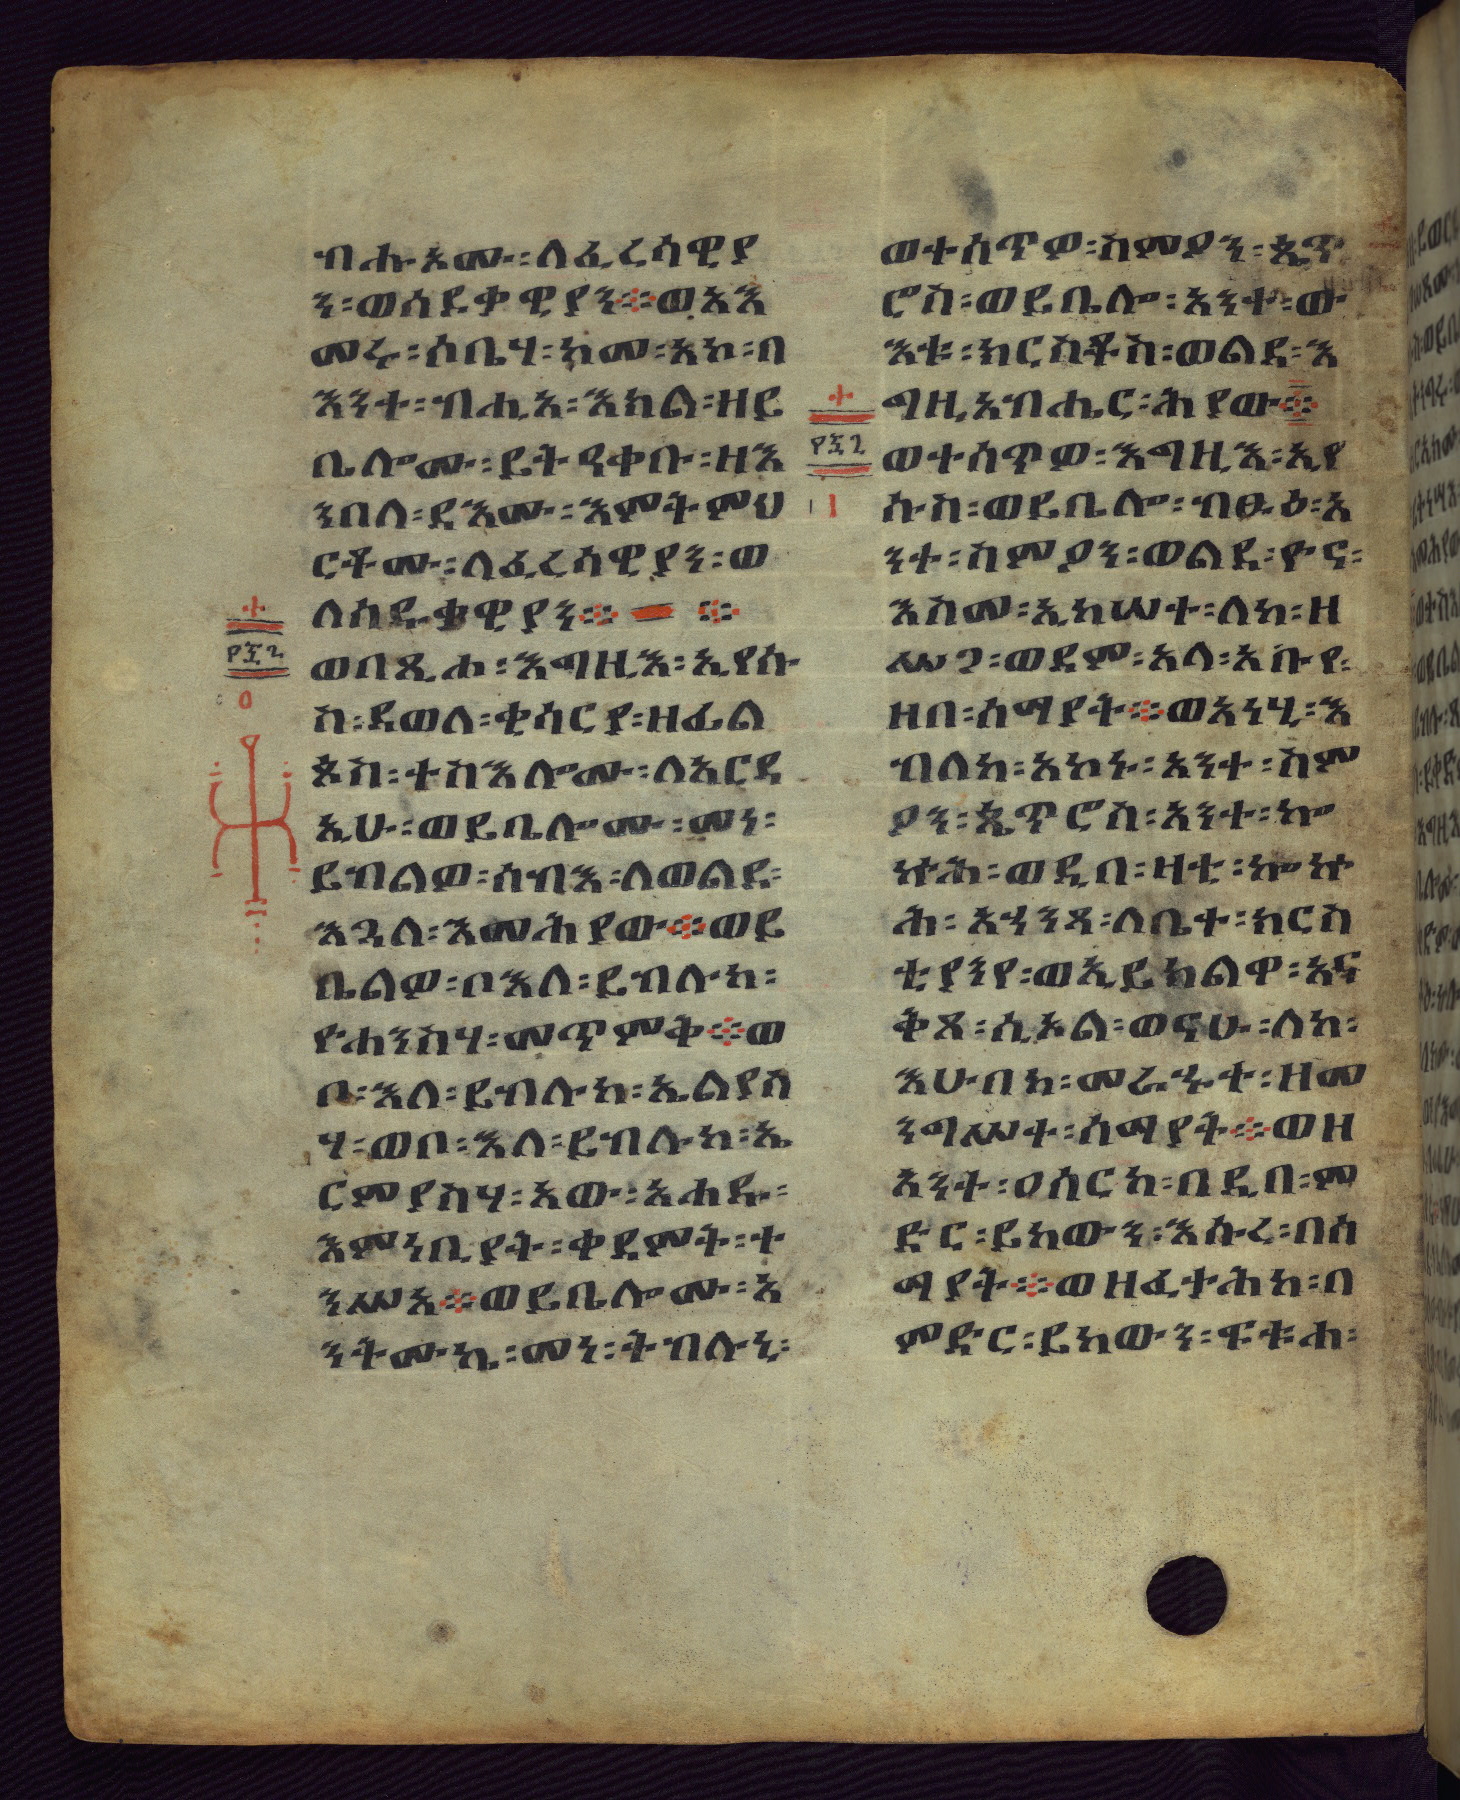 ብሑአሙ፡ለፈሪሳዊያ
ን፡ወሰዱቃዊያን፨ወእእ
መሩ፡ሰቤሃ፡ከመ፡አኮ፡በ
እንተ፡ብሒአ፡እክል፡ዘይ
ቤሎሙ፡ይትዓቀቡ፡ዘእ
ንበለ፡ደእሙ፡እምትምህ
ርቶሙ፡ለፈሪሳዊያን፡ወ
ለሰዱቃዊያን፨ ፨
፻፷፯
ወበጺሖ፡እግዚእ፡ኢየሱ
ስ፡ደወለ፡ቂሳርያ፡ዘፊል
ጶስ፡ተስእሎሙ፡ለአርዳ
ኢሁ፡ወይቤሎሙ፡መነ፡
ይብልዎ፡ሰብእ፡ለወልደ፡
እጓለ፡እመሕያው፨ወይ
ቤልዎ፡ቦእለ፡ይብሉከ፡
ዮሐንስሃ፡መጥምቅ፨ወ
ቦ፡እለ፡ይብሉከ፡ኤልያስ
ሃ፡ወቦ፡እለ፡ይብሉከ፡ኤ
ርምያስሃ፡አው፡አሐዱ፡
እምነቢያት፡ቀደምት፡ተ
ንሥአ፨ወይቤሎሙ፡አ
ንትሙኬ፡መነ፡ትብሉኒ፡
ወተሰጥዎ፡ስምዖን፡ጴጥ
ሮስ፡ወይቤሎ፡አንተ፡ው
እቱ፡ክርስቶስ፡ወልደ፡እ
ግዚአብሔር፡ሕያው፨
፻፷፯
ወተሰጥዎ፡እግዚእ፡ኢየ
ሱስ፡ወይቤሎ፡ብፁዕ፡አ
ንተ፡ስምዖን፡ወልደ፡ዮና፡
እስመ፡ኢከሠተ፡ለከ፡ዘ
ሥጋ፡ወደም፡አላ፡አቡየ፡
ዘበ፡ሰማያት፨ወአነሂ፡እ
ብለከ፡አኮኑ፡አንተ፡ስም
ዖን፡ጴጥሮስ፡አንተ፡ኰ
ኵሕ፡ወዲበ፡ዛቲ፡ኰኵ
ሕ፡አሃንጻ፡ለቤተ፡ክርስ
ቲያንየ፡ወኢይክልዋ፡አና
ቅጸ፡ሲኦል፡ወናሁ፡ለከ፡
እሁበከ፡መራኁተ፡ዘመ
ንግሥተ፡ሰማያት፨ወዘ
አንተ፡ዐሰርከ፡በዲበ፡ም
ድር፡ይከውን፡እሱረ፡በሰ
ማያት፨ወዘፈታሕከ፡በ
ምድር፡ይከውን፡ፍቱሐ፡